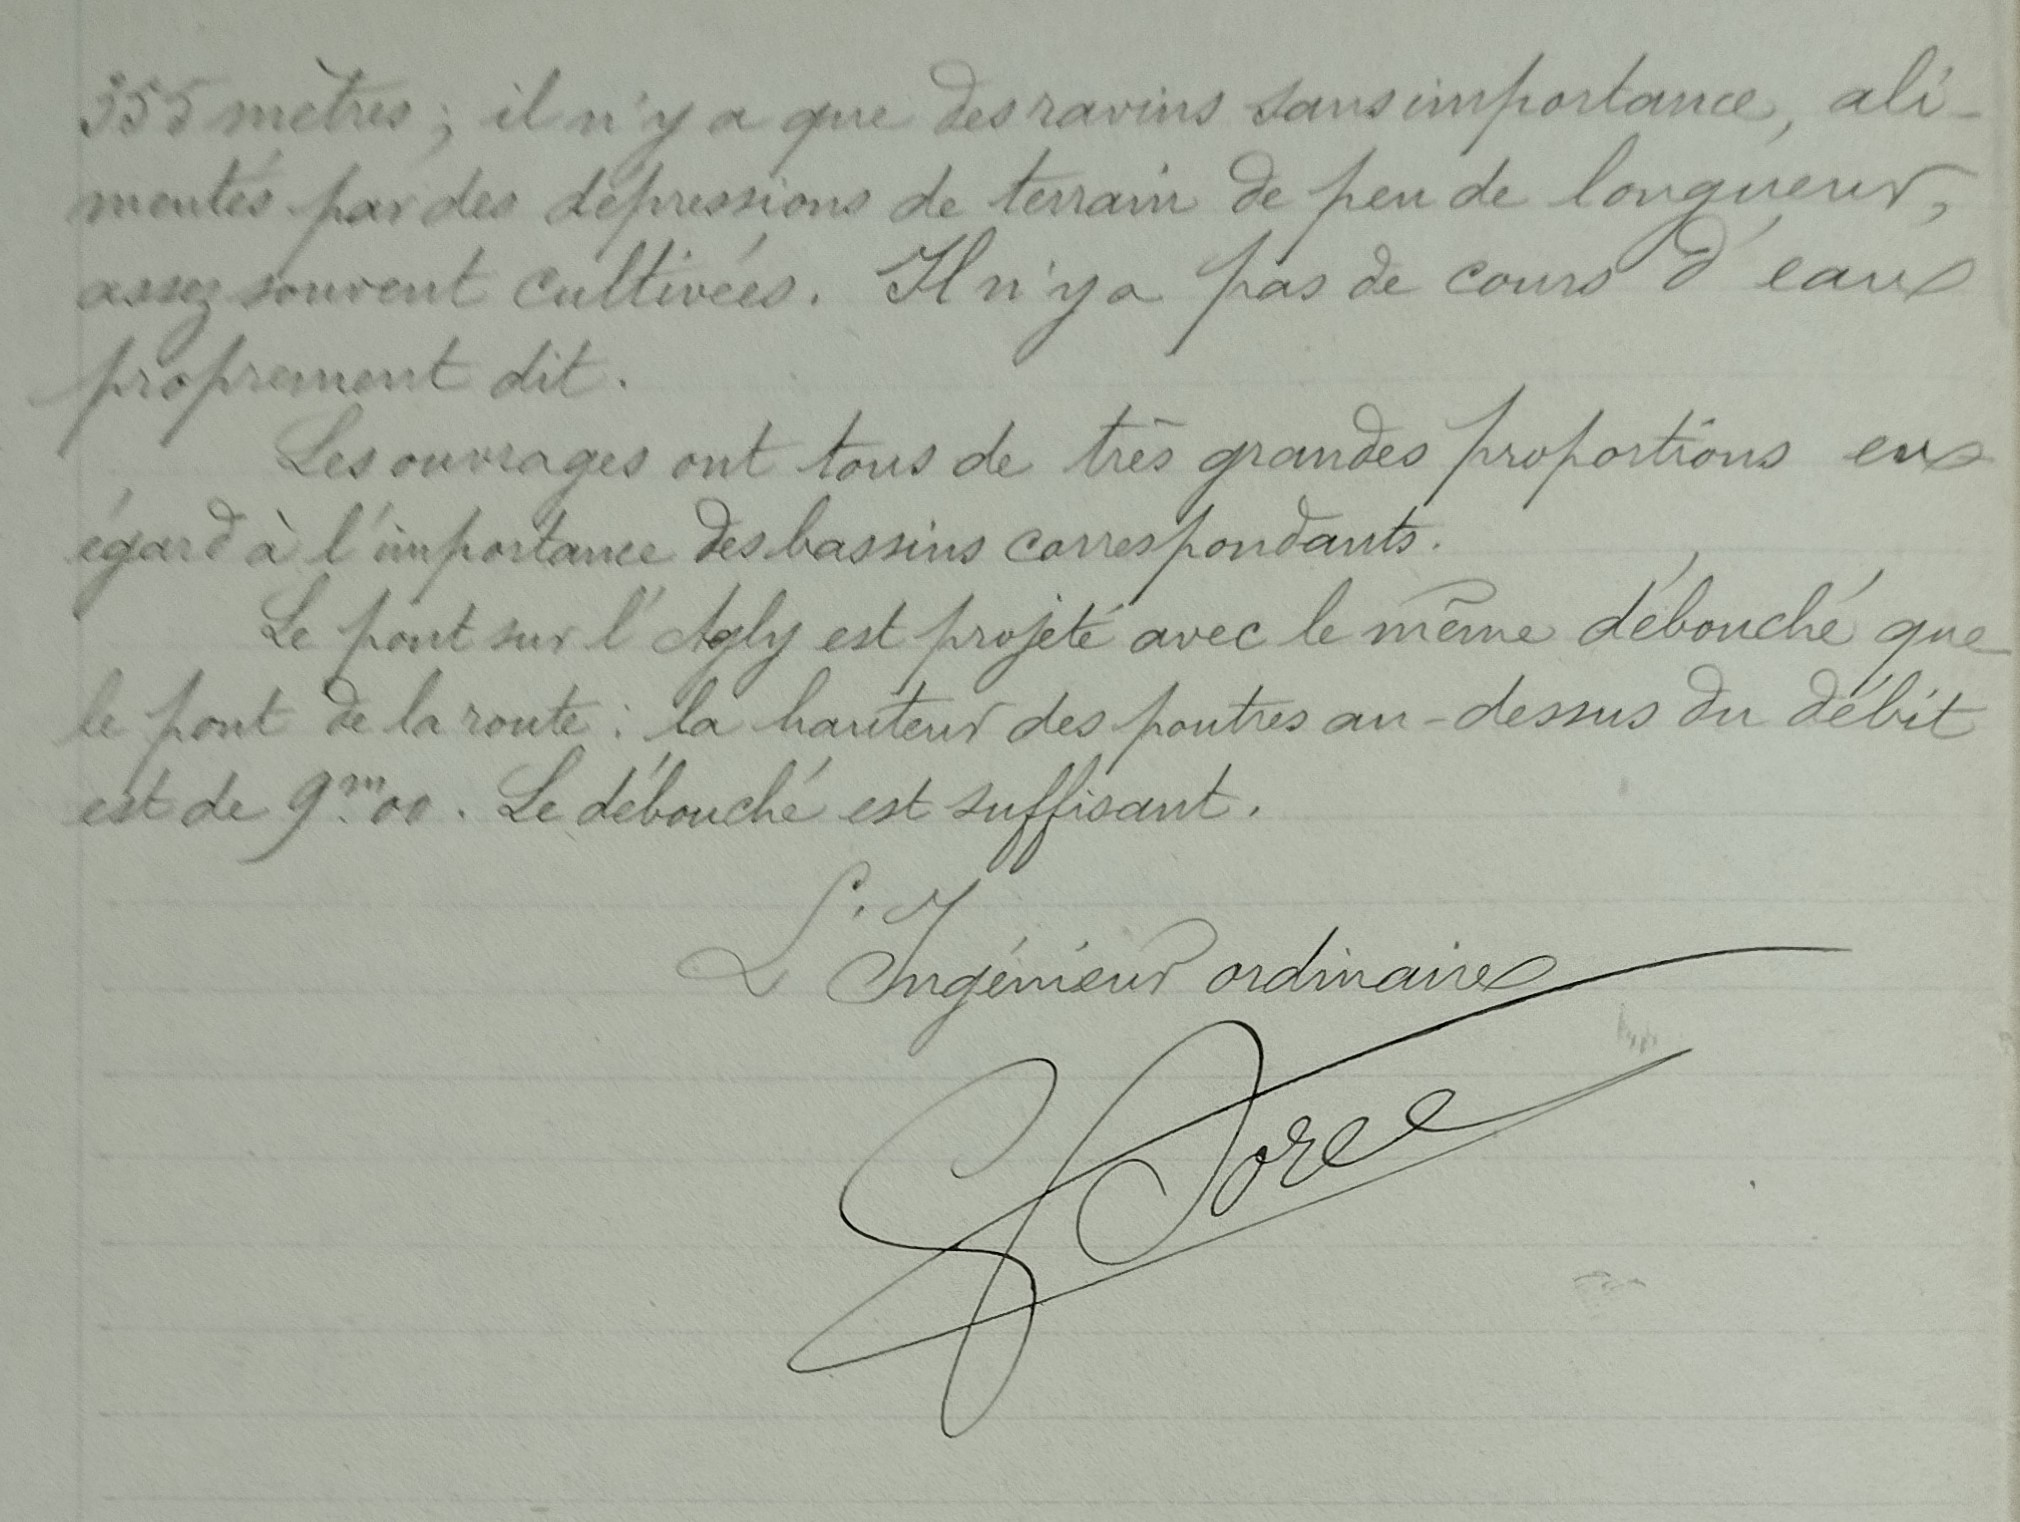 355 mètres ; il n'y a que des ravins sans importance, ali-
mentés par des dépressions de terrain de peu de longueur,
assez souvent cultivées. Il n'y a pas de cours d'eau
proprement dit.
Les ouvrages ont tous de très grandes proportions eu
égard à l'importance des bassins correspondants.
Le pont sur l'Agly est projeté avec le même débouché que
le pont de la route : la hauteur des poutres au-dessus du débit
est de 9.m00. Le débouché est suffisant.
L'Ingénieur ordinaire